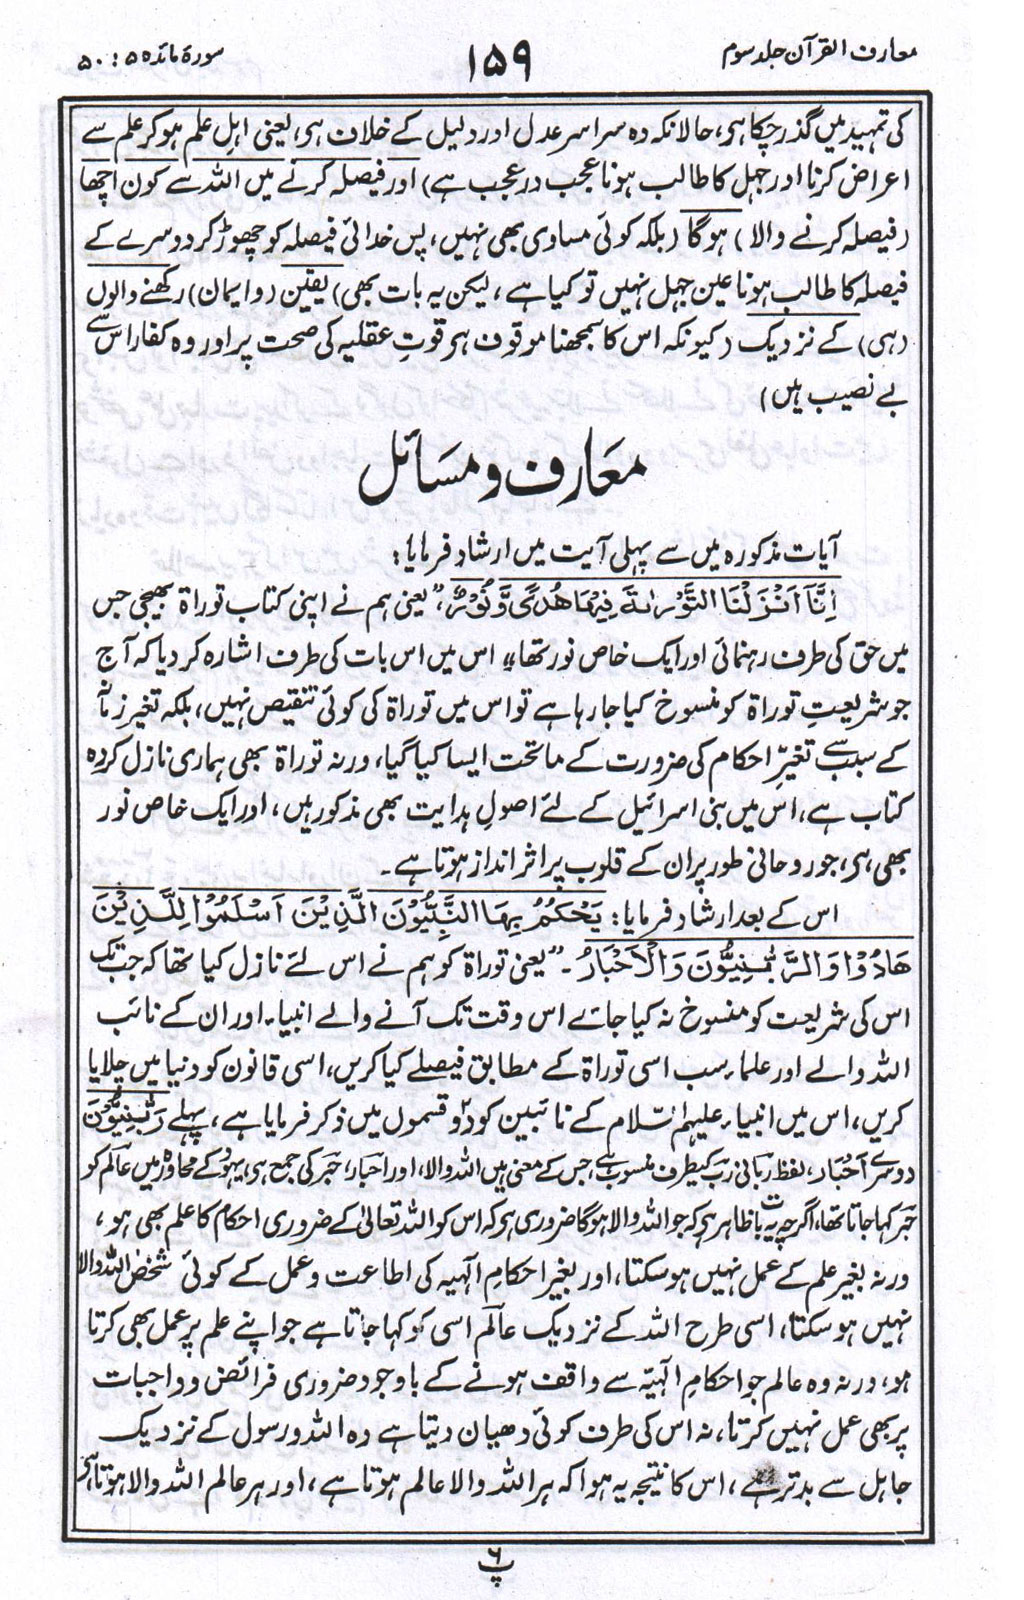 معارف القرآن جلد سوم
۱۵۹
سورۃ مائدہ ۵ : ۵۰
کی تمہید میں گذر چکا ہی، حالانکہ وہ سراسر عدل اور دلیل کے خلاف ہی، یعنی اہلِ علم ہو کر علم سے
اعراض کرنا اور جہل کا طالب ہونا عجب در عجب ہے) اور فیصلہ کرنے میں اللہ سے کون اچھا
(فیصلہ کرنے والا) ہوگا (بلکہ کوئی مساوی بھی نہیں، پس خدائی فیصلہ کو چھوڑ کر دوسرے کے
فیصلہ کا طالب ہونا عین جہل نہیں تو کیا ہے، لیکن یہ بات بھی) یقین (و ایمان) رکھنے والوں
(ہی) کے نزدیک (کیونکہ اس کا سمجھنا موقوف ہر قوتِ عقلیہ کی صحت پر اور وہ کفار اس سے
بے نصیب ہیں)
معارف و مسائل
آیات مذکورہ میں سے پہلی آیت میں ارشاد فرمایا:
اِنَّآ اَنْزَلْنَا التَّوْرٰىةَ فِیْهَا هُدًى وَّنُوْرٌ، ”یعنی ہم نے اپنی کتاب توراۃ بھیجی جس
میں حق کی طرف رہنمائی اور ایک خاص نور تھا“ اس میں اس بات کی طرف اشارہ کر دیا کہ آج
جو شریعتِ توراۃ کو منسوخ کیا جا رہا ہے تو اس میں توراۃ کی کوئی تنقیص نہیں، بلکہ تغیرِ زمانہ
کے سبب سے تغیّرِ احکام کی ضرورت کے ماتحت ایسا کیا گیا، ورنہ توراۃ بھی ہماری نازل کردہ
کتاب ہے، اس میں بنی اسرائیل کے لئے اصولِ ہدایت بھی مذکور ہیں، اور ایک خاص نور
بھی ہی، جو روحانی طور پر ان کے قلوب پر اثر انداز ہوتا ہے۔
اس کے بعد ارشاد فرمایا: یَحْکُمُ بِهَا النَّبِیُّوْنَ الَّذِیْنَ اَسْلَمُوْا لِلَّذِیْنَ
هَادُوْا وَالرَّبّٰنِیُّوْنَ وَالْاَحْبَارُ۔ ”یعنی توراۃ کو ہم نے اس لئے نازل کیا تھا کہ جب تک
اس کی شریعت کو منسوخ نہ کیا جائے اس وقت تک آنے والے انبیاء اور ان کے نائب
اللہ والے اور علماء سب اسی توراۃ کے مطابق فیصلے کیا کریں، اسی قانون کو دنیا میں چلایا
کریں، اس میں انبیاء علیہم السلام کے نائبین کو دو قسموں میں ذکر فرمایا ہے، پہلے رَبّٰنِیُّوْنَ
دوسرے اَحْبَار، لفظ ربانی رب کیطرف منسوب ہے، جس کے معنی ہیں اللہ والا، اور احبار، حَبر کی جمع ہی، یہود کے محاورہ میں عالم کو
حَبر کہا جاتا تھا، اگرچہ یہ بات ظاہر ہر کہ جو اللہ والا ہوگا ضروری ہر کہ اس کو اللہ تعالیٰ کے ضروری احکام کا علم بھی ہو،
ورنہ بغیر علم کے عمل نہیں ہو سکتا، اور بغیر احکامِ الٰہیہ کی اطاعت و عمل کے کوئی شخص اللہ والا
نہیں ہو سکتا، اسی طرح اللہ کے نزدیک عالم اسی کو کہا جاتا ہے جو اپنے علم پر عمل بھی کرتا
ہو، ورنہ وہ عالم جو احکام الٰہیّہ سے واقف ہونے کے باوجود ضروری فرائض و واجبات
پر بھی عمل نہیں کرتا، نہ اس کی طرف کوئی دھیان دیتا ہے وہ اللہ و رسول کے نزدیک
جاہل سے بدتر ہے، اس کا نتیجہ یہ ہوا کہ ہر اللہ والا عالم ہوتا ہے، اور ہر عالم اللہ والا ہوتا ہی
پ ۶